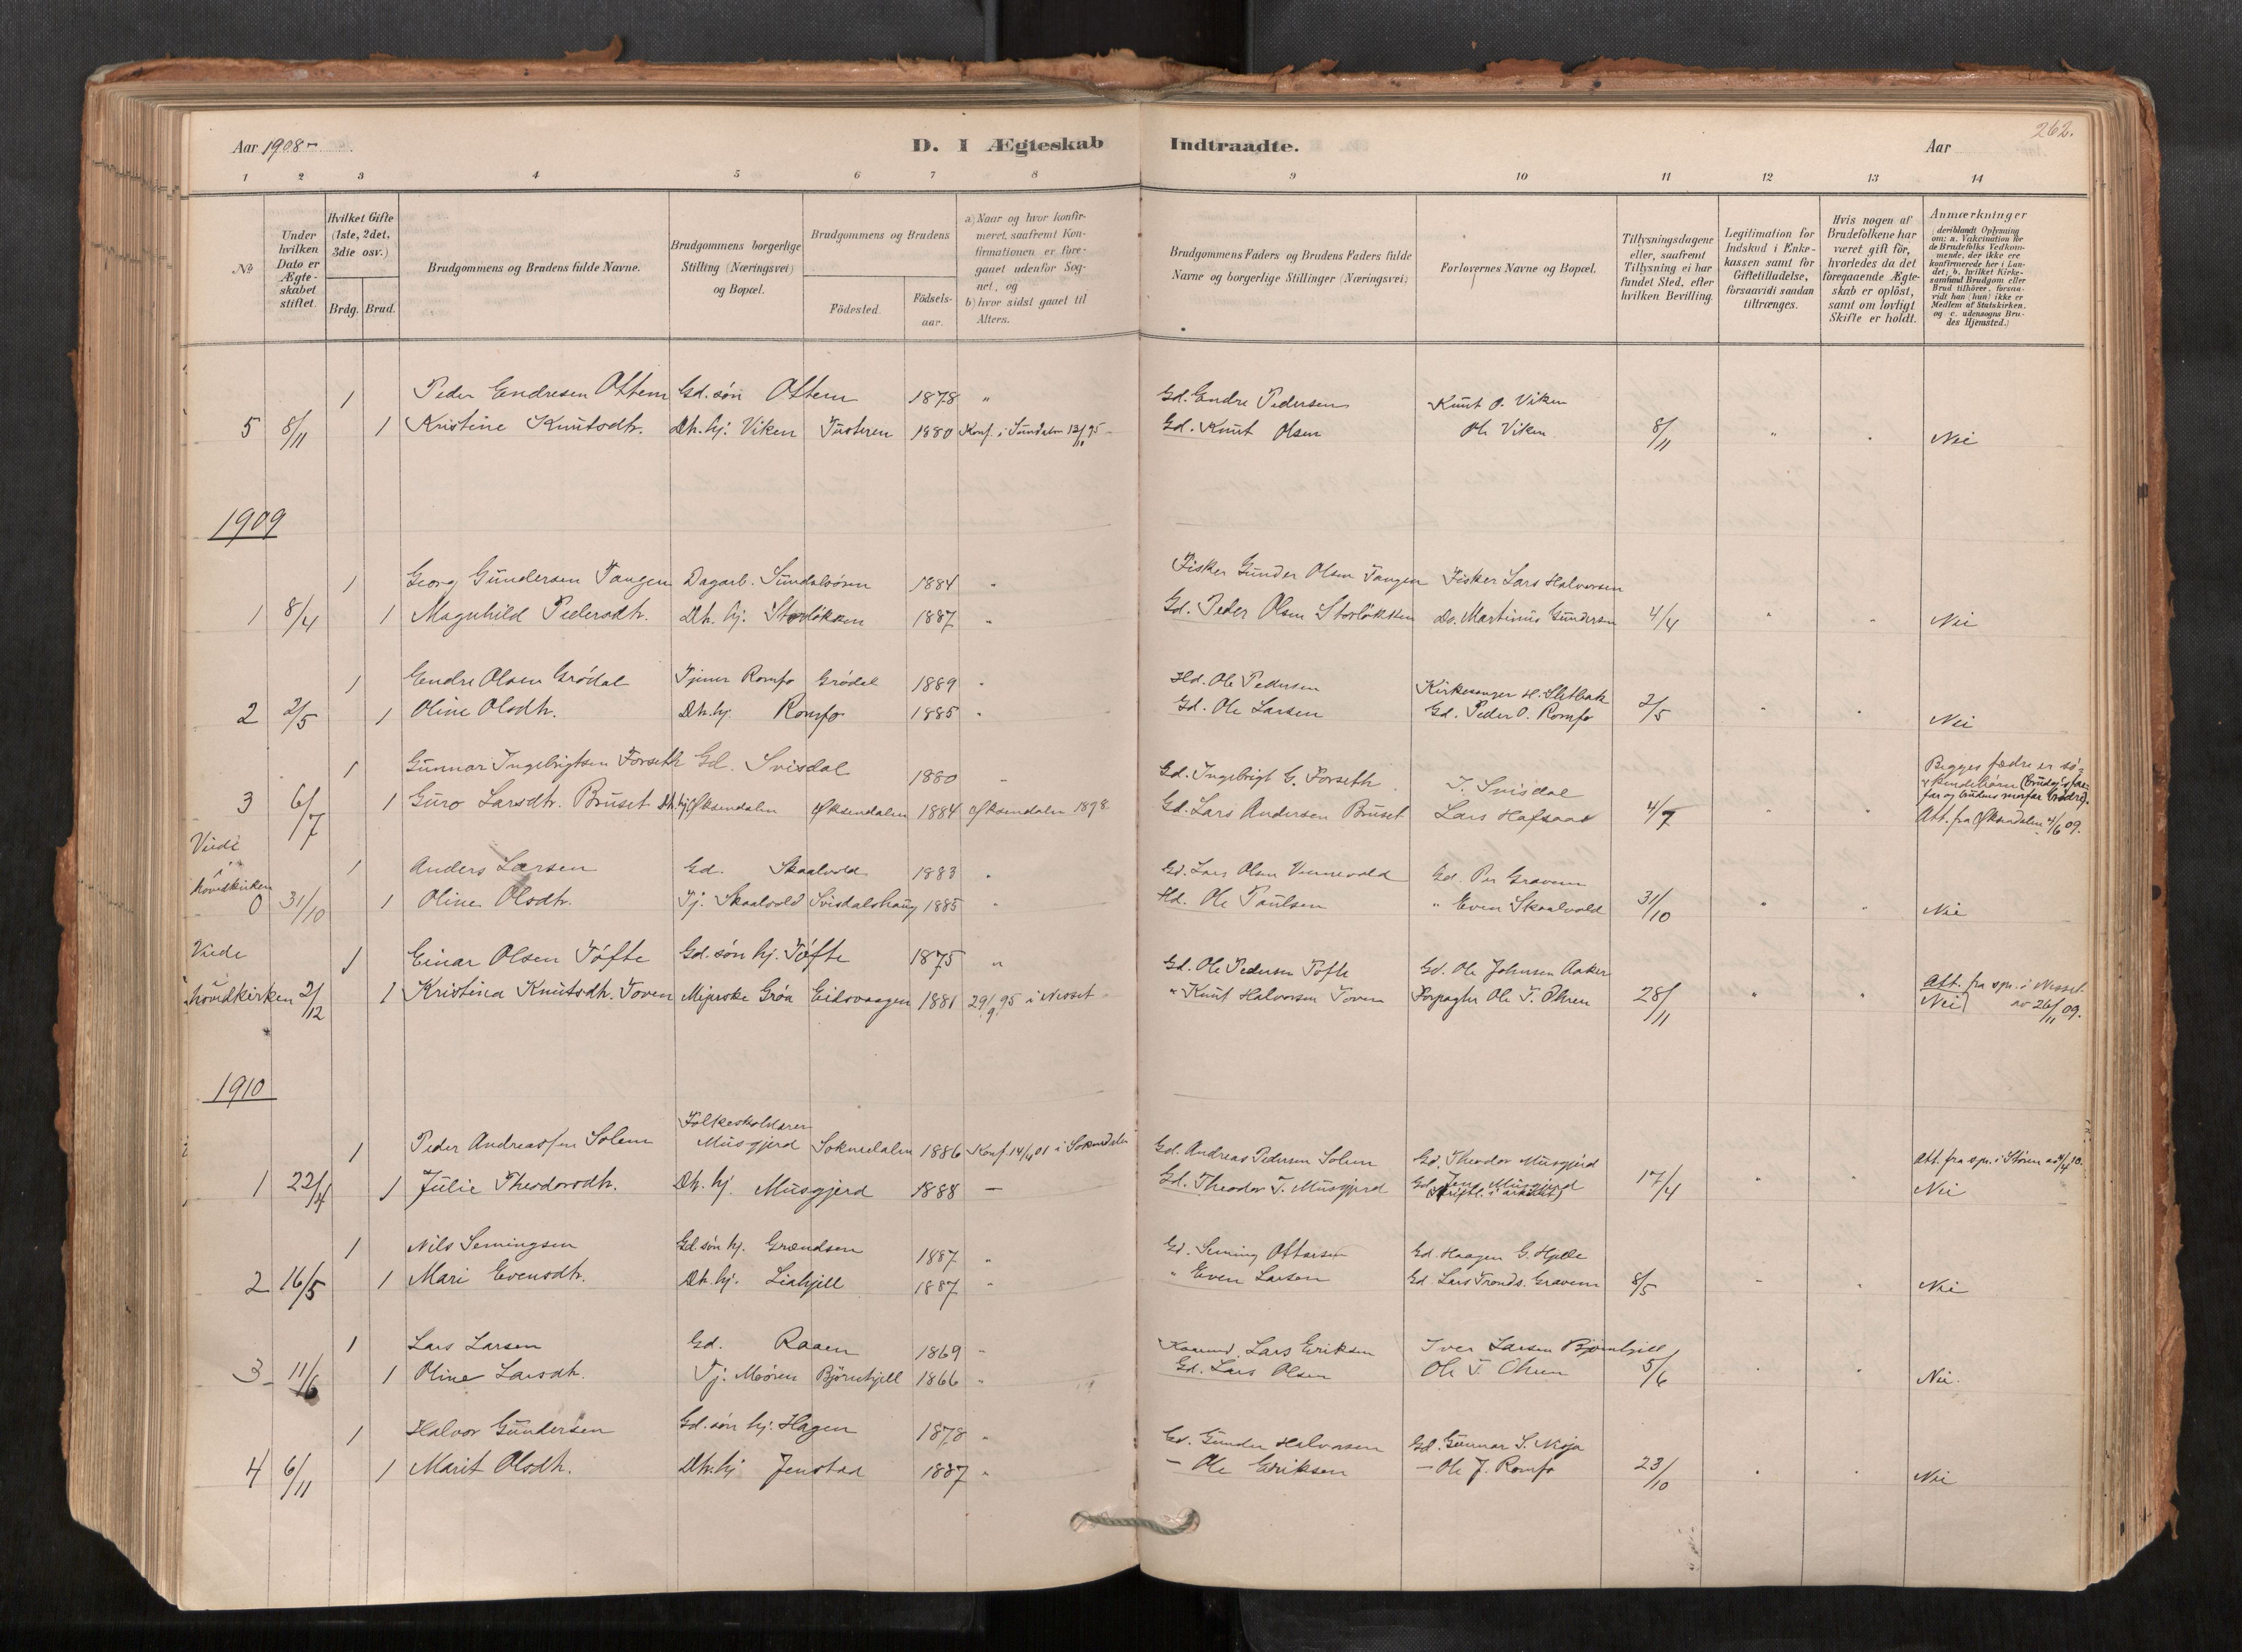 262.
Aar 1908 D. I Ægteskab Indtraadte. Aar
1 2 3 4 5 6 7 8 9 10 11 12 13 14
No
Under hvilken Dato er Ægteskabet stiftet.
Hvilket Gifte (1ste, 2det, 3die osv.)
Brdg. Brud.
Brudgommens og Brudens fulde Navne.
Brudgommens borgerlige Stilling (Næringsvei) og Bopæl.
Brudgommens og Brudens
Födested. Födsels-aar.
a) Naar og hvor konfirmeret, saafremt Konfirmationen er foregaaet udenfor Sognet, og
b) hvor sidst gaaet til Alters.
Brudgommens Faders og Brudens Faders fulde Navne og borgerlige Stillinger (Næringsvei)
Forlovernes Navne og Bopæl.
Tillysningsdagene eller, saafremt Tillysning ei har fundet Sted, efter hvilken Bevilling.
Legitimation for Indskud i Enkekassen samt for Giftetilladelse, forsaavidt saadan tiltrænges.
Hvis nogen af Brudefolkene har været gift för, hvorledes da det foregaaende Ægteskab er oplöst, samt om lovligt Skifte er holdt.
Anmærkninger (deriblandt Oplysning om: a. Vakcination for de Brudefolks Vedkommende, der ikke ere konfirmerede her i Landet; b. hvilket Kirkesamfund Brudgom eller Brud tilhörer, forsaavidt han (hun) ikke er Medlem af Statskirken. og c. udensogns Brudes Hjemsted.)
1 Peder Endresen Ottem Gd. søn Ottem 1878 " Gd. Endre Pedersen Knut O. Viken
5 8/11 1 Kristine Knutsdtr. Dtr. hj. Viken Tusteren 1880 Konf. i Sundalen 13/10 95 Gd. Knut Olsen Ole Viken 8/11 " " Nei
1909
1 Georg Gundersen Tangen Dagarb. Sundalsøren 1884 " Fisker Gunder Olsen Tangen Fisker Lars Halvorsen
1 8/4 1 Magnhild Pedersdtr. Dtr. hj. Storløkken 1887 " Gd. Peder Olsen Storløkken do. Martinus Gundersen 4/4 " " Nei
1 Endre Olsen Grødal Tjener Romfo Grødal 1889 " Hd. Ole Pedersen Kirkesanger H. Sletbak
2 2/5 1 Oline Olsdtr. Dtr. hj. Romfo 1885 " Gd. Ole Larsen Gd. Peder O. Romfo 2/5 " " Nei
1 Gunnar Ingebrigtsen Forseth Gd. Svisdal 1880 " Gd. Ingebrigt G. Forseth J. Svisdal Begges fædre er
3 6/7 1 Guro Larsdtr. Bruset Dtr. hj. Øksendalen Øksendalen 1884 Øksendalen 1898 Gd. Lars Andersen Bruset Lars Hafsaas 4/7 " " far og brudens morfar brødre).
Att. fra Øksendalen 4/6 09.
Viede
i
hovedkirken
1 Anders Larsen Gd. Skaalvold 1883 " Gd. Lars Olsen Vennevold Gd. Per Gravem
0 31/10 1 Oline Olsdtr. Tj. Skaalvold Svisdalshaug 1885 " Hd. Ole Paulsen " Even Skaalvold 31/10 " " Nei
Viede
1 Einar Olsen Tøfte Gd. søn hj. Tøfte 1875 " Gd. Ole Pedersen Tøfte Gd. Ole Johnsen Aaker
i hovedkirken 2/12 1 Kristina Knutsdtr. Toven Meierske Grøa Eidsvaagen 1881 29/9 95 i Nesset " Knut Halvorsen Toven Forpagter Ole T. Ohren 28/11 " " Att. fra spr. i Nesset
Nei av 26/11 09.
1910
1 Peder Andreassen Solem Folkeskolelærer Musgjerd Soknedalen 1886 Konf. 14/4 01 i Soknedalen Gd. Andreas Pedersen Solem Gd. Theodor Musgjerd Att. fra spr. i Støren 4/4 10.
1 22/4 1 Julie Theodorsdtr. Dtr. hj. Musgjerd 1888 — Gd. Theodor T. Musgjerd Gd. Jens Musgjerd (skriftl. i arkivet) 17/4 " " Nei
1 Nils Semingsen Gd. søn hj. Grændsen 1887 " Gd. Seming Ottersen Gd. Haagen G. Hjelle
2 16/5 1 Mari Evensdtr. Dtr. hj. Liahjell 1887 " " Even Larsen Gd. Lars Tronds. Gravem 8/5 " " Nei
1 Lars Larsen Gd. Raaen 1869 " Lars Eriksen Iver Larsen Bjørnhjell
3 11/6 1 Oline Larsdtr. Tj. Møren Bjørnhjell 1866 " Gd. Lars Olsen Ole T. Ohren 5/6 " " Nei.
1 Halvor Gundersen Gd. søn hj. Hagen 1878 " Gd. Gunder Halvorsen Gd. Gunnar S. Nisja
4 6/11 1 Marit Olsdtr. Dtr. hj. Jenstad 1887 " — Ole Eriksen — Ole J. Romfo 23/10 " " Nei